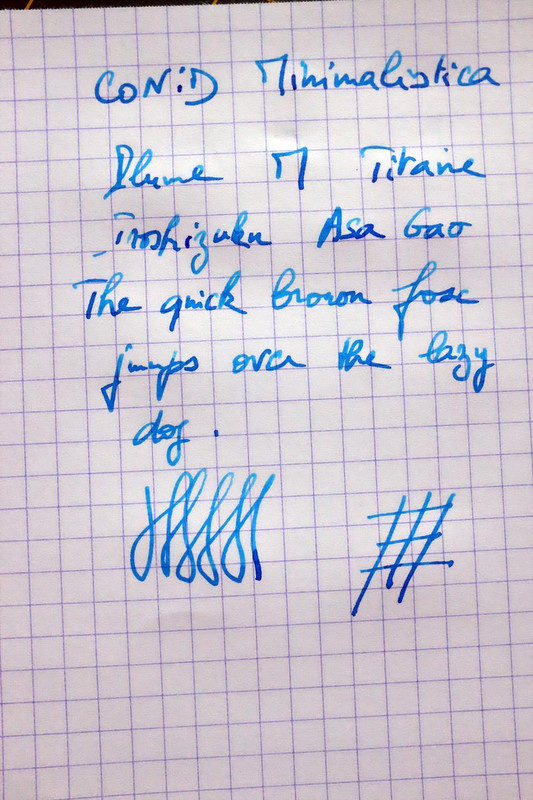 CONiD Minimalistica
Plume M Titane
Iroshizuku Asa Gao
The quick brown fox
jumps over the lazy
dog.